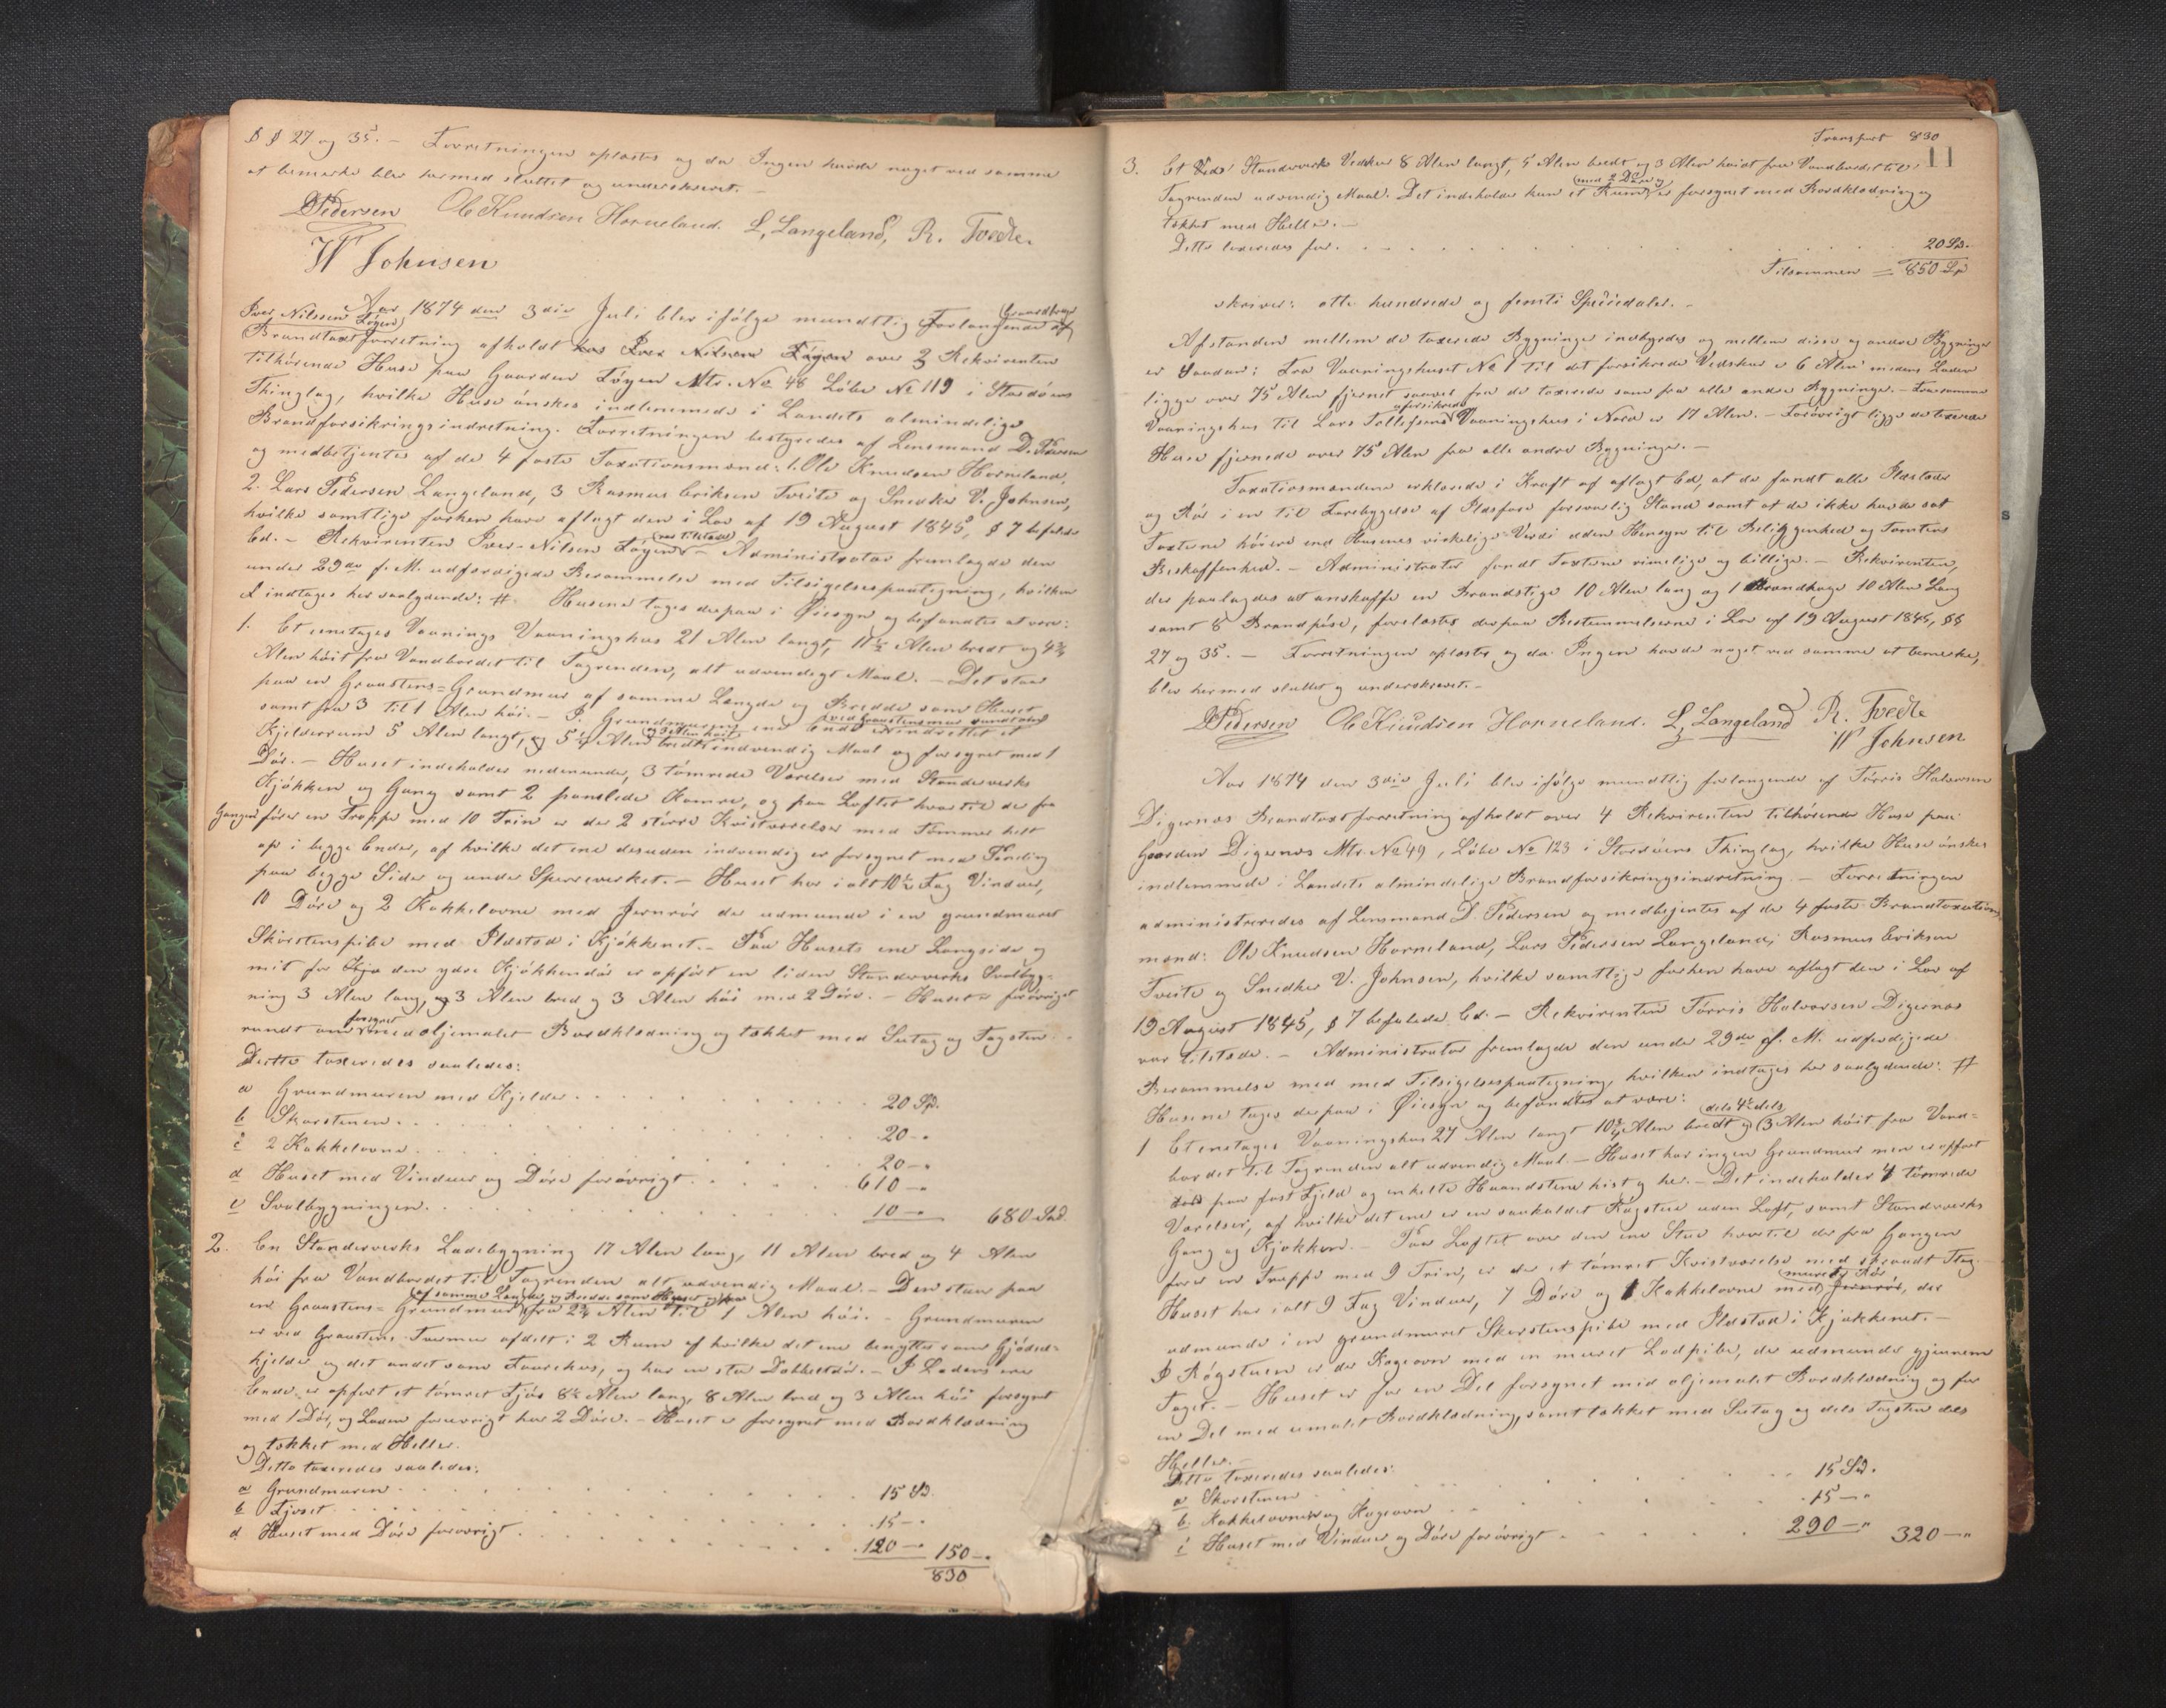 § § 27 og 35. — Forretningen oplæstes og da Ingen havde noget ved samme
at bemærke blev hermed sluttet og underskrevet. —
DPedersen Ole Knudsen Horneland. L. Langeland, R. Tvedte.
W Johnsen
Aar 1874 den 3die Juli blev ifølge mundtlig Forlangende af
Iver Nilsen Løgen
Brandtaxtforretning afholdt hos Iver Nilsen Løgen over 3 Rekvirenten
tilhørende Huse paa Gaarden Løgen Mtr. No 48 Løbe No 119 i Stordøens
Thinglag, hvilke Huse ønskes indlemmede i Landets almindelige
Brandforsikringsindretning. Forretningen bestyredes af Lensmand D. Pedersen
og medbetjentes af de 4 faste Taxationsmænd: 1. Ole Knudsen Horneland,
2. Lars Pedersen Langeland, 3 Rasmus Eriksen Tveite og Snedker V. Johnsen,
hvilke samtlige forhen have aflagt den i Lov af 19 August 1845, § 7 befalede
Ed. — Rekvirenten Iver Nilsen Løgen var tilstede — Administrator fremlagde den
under 29de f. M. udfærdigede Berammelse med Tilsigelsespaategning, hvilken
indtages her saalydende: # Husene toges derpaa i Øiesyn og befandtes at være:
1. Et eenetages Vaanings Vaaningshus 21 Alen langt, 11½ Alen bredt og 4¾
Alen høit fra Vandbordet til Tagrenden, alt udvendigt Maal. — Det staar
paa en Graastens-Grundmur af samme Længde og Bredde som Huset
samt fra 3 til 1 Alen høi. — I Grundmurens ene Ende ved Graastensmur indrettet et
Kjelderrum 5 Alen langt, og 5¼ Alen bredt og 3 Alen høit indvendig Maal og forsynet med 1
Dør. — Huset indeholder nedenunder, 3 tømrede Værelser med Standerverks
Kjøkken og Gang samt 2 panelede Kamre, og paa Loftet hvortil der fra
Gangen fører en Trappe med 10 Trin er der 2 større Kvistværelser med Tømmer helt
op i begge Ender, af hvilke det ene desuden indvendig er forsynet med Panding
paa begge Sider og under Sperreverket. — Huset har i alt 10½ Fag Vinduer,
10 Døre og 2 Kakkelovne med Jernrør der udmunde i en grundmuret
Skorstenspibe med Ildsted i Kjøkkenet. — Paa Husets ene Langside og
mit for Kjø den ydre Kjøkkendør er opført en liden Standerverks Svalbyg-
ning 3 Alen lang, og 3 Alen bred og 3 Alen høi med 2 Døre. — Huset er forøvrigt
rundt om forsynet med oljemalet Bordklædning og tækket med Sutag og Tagsten.
Dette taxeredes saaledes:
a Grundmuren med Kjelder . . . 20 Sp.
b Skorstenen . . . 20 — "
c 2 Kakkelovne . . . 20 — "
d Huset med Vinduer og Døre forøvrigt . . . 610 — "
e Svalbygningen . . . 10 — " 680 Spd.
2. En Standerverks Ladebygning 17 Alen lang, 11 Alen bred og 4 Alen
høi fra Vandbordet til Tagrenden alt udvendig Maal. — Den staar paa
en Graastens-Grundmur af samme Længde og Bredde som Huset og fra 2¾ Alen til 1 Alen høi. — Grundmuren
er ved Graastens Tvermur afdelt i 2 Rum af hvilke det ene benyttes som Gjødsel-
kjelder og det andet som Faarehus, og har en stor Dobbeltdør. — I Ladens ene
Ende er opført et tømret Fjøs 8½ Alen lang, 8 Alen bred og 3 Alen høi forsynet
med 1 Dør, og Laden forøvrigt har 2 Døre. — Huset er forsynet med Bordklædning
og tækket med Heller.
Dette taxeredes saaledes:
a Grundmuren . . . 15 Sp.
b Fjøset . . . 15 — "
d Huset med Døre forøvrigt . . . 120 — " 150 — "
830
Transport 830
11
3. Et Standsverks Vedskur 8 Alen langt, 5 Alen bredt og 3 Alen høidt fra Vandbordet til
Tagrenden udvendig Maal. Det indeholder kun et Rum med 2 Døre og er forsynet med Bordklædning og
tækket med Heller. —
Dette taxeredes for . . . 20 Sp.
Tilsammen = 850 Sp
skriver: otte hundrede og femti Speciedaler. —
Afstanden mellem de taxerede Bygninger indbyrdes og mellem disse og andre Bygninger
er saadan: Fra Vaaningshuset No 1 til det forsikrede Vedskur er 6 Alen medens Laden
ligger over 75 Alen fjernet saavel fra de taxerede som fra alle andre Bygninger. — Fra samme
Vaaningshus til Lars Tollefsens uforsikrede Vaaningshus i Nord er 17 Alen. — Forøvrigt ligge de taxerede
Huse fjernede over 75 Alen fra alle andre Bygninger. —
Taxationsmændene erklærede i Kraft af aflagt Ed, at de fandt alle Ildsteder
og Rør i en til Forebyggelse af Ildsfare forsvarlig Stand samt at de ikke havde sat
Taxterne høiere end Husenes virkelige Værdi uden Hensyn til Beliggenhed og Tomtens
Beskaffenhed. — Administrator fandt Taxterne rimelige og billige. — Rekvirenten,
der paalagdes at anskaffe en Brandstige 10 Alen lang og 1 Brandhage 10 Alen lang
samt 8 Brandpøse, forelæstes derpaa Bestemmelserne i Lov af 19 August 1845, §§
27 og 35. — Forretningen oplæstes og da Ingen havde noget ved samme at bemærke,
blev hermed sluttet og underskrevet. —
DPedersen Ole Knudsen Horneland. L. Langeland R. Tvedte
W Johnsen
Aar 1874 den 3die Juli blev ifølge mundtlig forlangende af Tørris Halvorsen
Digernæs Brandtaxtforretning afholdt over 4 Rekvirenten tilhørende Huse paa
Gaarden Digernæs Mtr. No 49, Løbe No 123 i Stordøens Thinglag, hvilke Huse ønskes
indlemmede i Landets almindelige Brandforsikringsindretning. — Forretningen
administreredes af Lensmand D. Pedersen og medbetjentes af de 4 faste Brandtaxations
mænd: Ole Knudsen Horneland, Lars Pedersen Langeland, Rasmus Eriksen
Tveite og Snedker V. Johnsen, hvilke samtlige forhen have aflagt den i Lov af
19 August 1845, § 7 befalede Ed. — Rekvirenten Tørris Halvorsen Digernæs
var tilstede. — Administrator fremlagde den under 29de f. M. udfærdigede
Berammelse med med Tilsigelsespaategning, hvilken indtages her saalydende: #
Husene toges derpaa i Øiesyn og befandtes at være:
1 Et enetages Vaaningshus 27 Alen langt 10¾ Alen bredt og dels 4½ dels 3 Alen høit fra Vand-
bordet til Tagrenden alt udvendig Maal. — Huset har ingen Grundmur men er opført
paa fast Fjeld og enkelte Haandstene hist og her. — Det indeholder 4 tømrede
Værelser, af hvilke det ene er en saakaldet Røgstue uden Loft, samt Standverks
Gang og Kjøkken. — Paa Loftet over den ene Stue hvortil der fra Gangen
fører en Trappe med 9 Trin, er der et tømret Kvistværelse med skraadt Tag.
Huset har i alt 9 Fag Vinduer, 7 Døre og 1 Kakkelovne med murede Rør Jernrør, der
udmunde i en grundmuret Skorstenspibe med Ildsted i Kjøkkenet. —
I Røgstuen er der Rogeovn med en muret Lodpibe, der udmunder gjennem
Taget. — Huset er for en Del forsynet med oljemalet Bordklædning og for
en Del med umalet Bordklædning, samt tækket med Sutag og dels Tagsten dels
Heller. —
Dette taxeredes saaledes:
a Skorstenen . . . 15 Sp.
b Kakkelovnen og Rogeovn . . . 15 — "
c Huset med Vinduer og Døre forøvrigt . . . 290 — " 320 — "